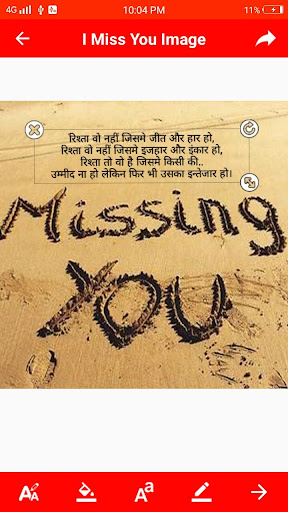 4G 10:04 PM 11%
I Miss You Image
रिश्ता वो नहीं जिसमे जीत और हार हो,
रिश्ता वो नहीं जिसमे इजहार और इंकार हो,
रिश्ता तो वो है जिसमे किसी की..
उम्मीद ना हो लेकिन फिर भी उसका इन्तेजार हो।
Missing
You
A
Aa